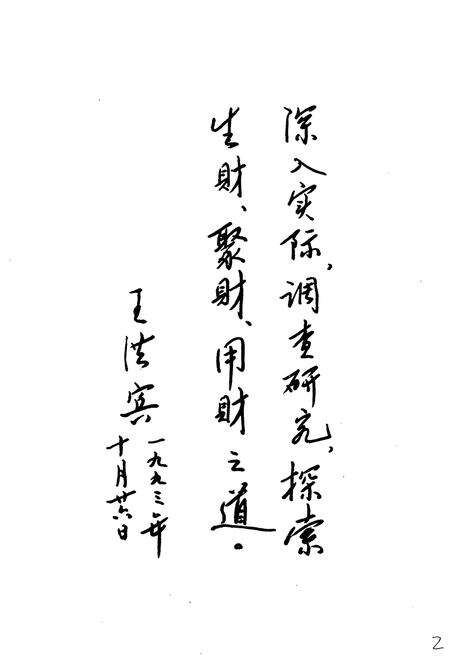 深入实际,调查研究,探索
生財、聚財、用財之道。
王洪宾
一九九三年
十月廿六日
2